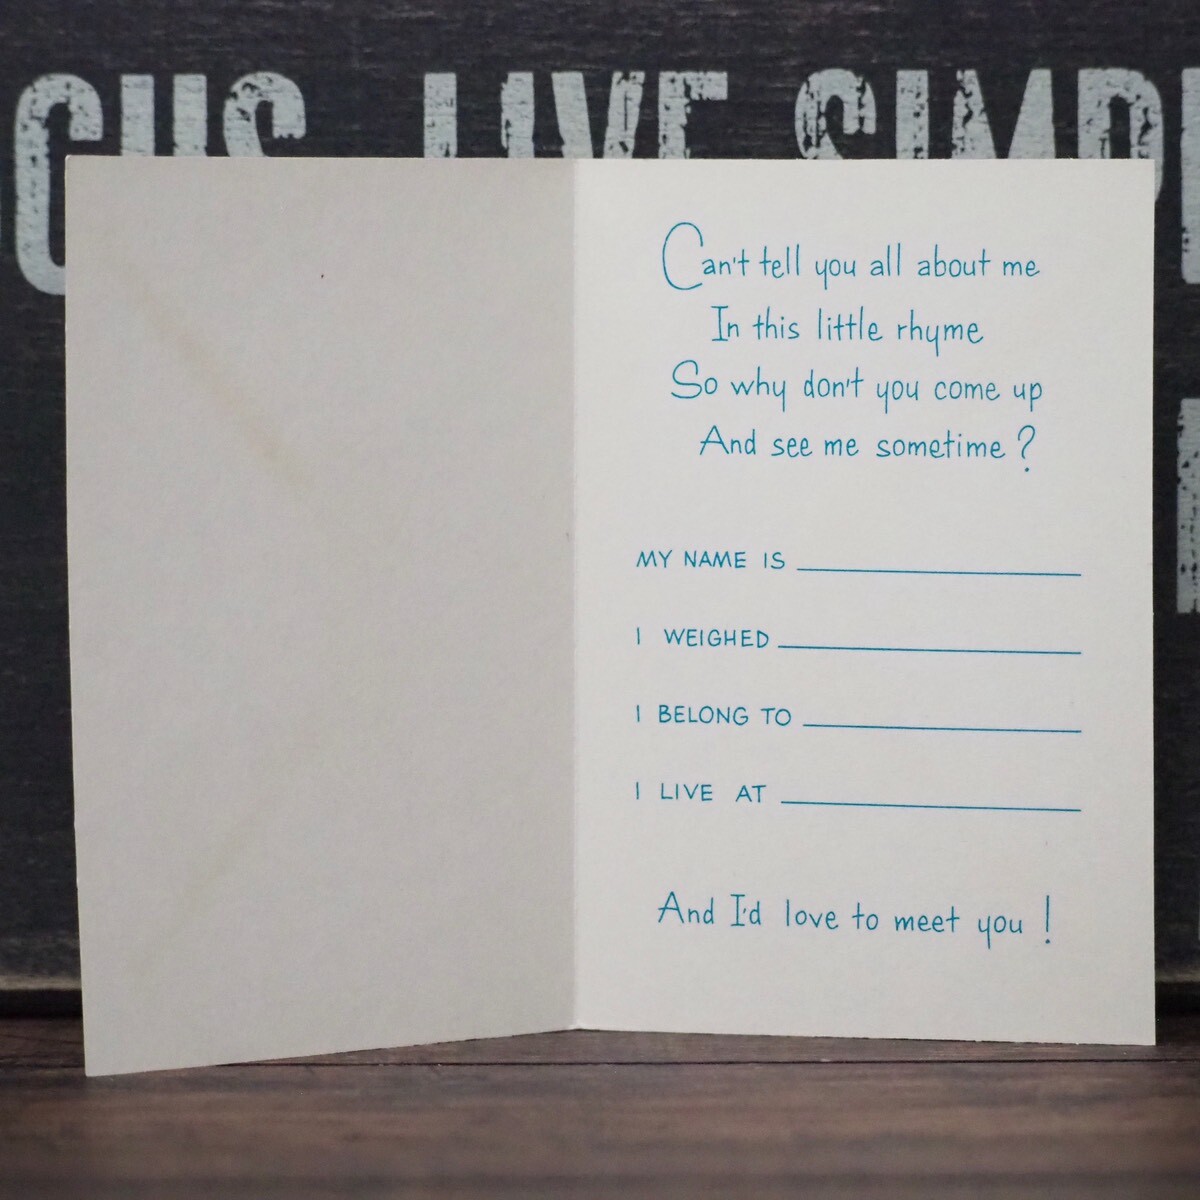 LIVE
Can't tell you all about me
In this little rhyme
So why don't you come up
And see me sometime?
MY NAME IS
I WEIGHED
I BELONG TO
I LIVE AT
And I'd love to meet you!